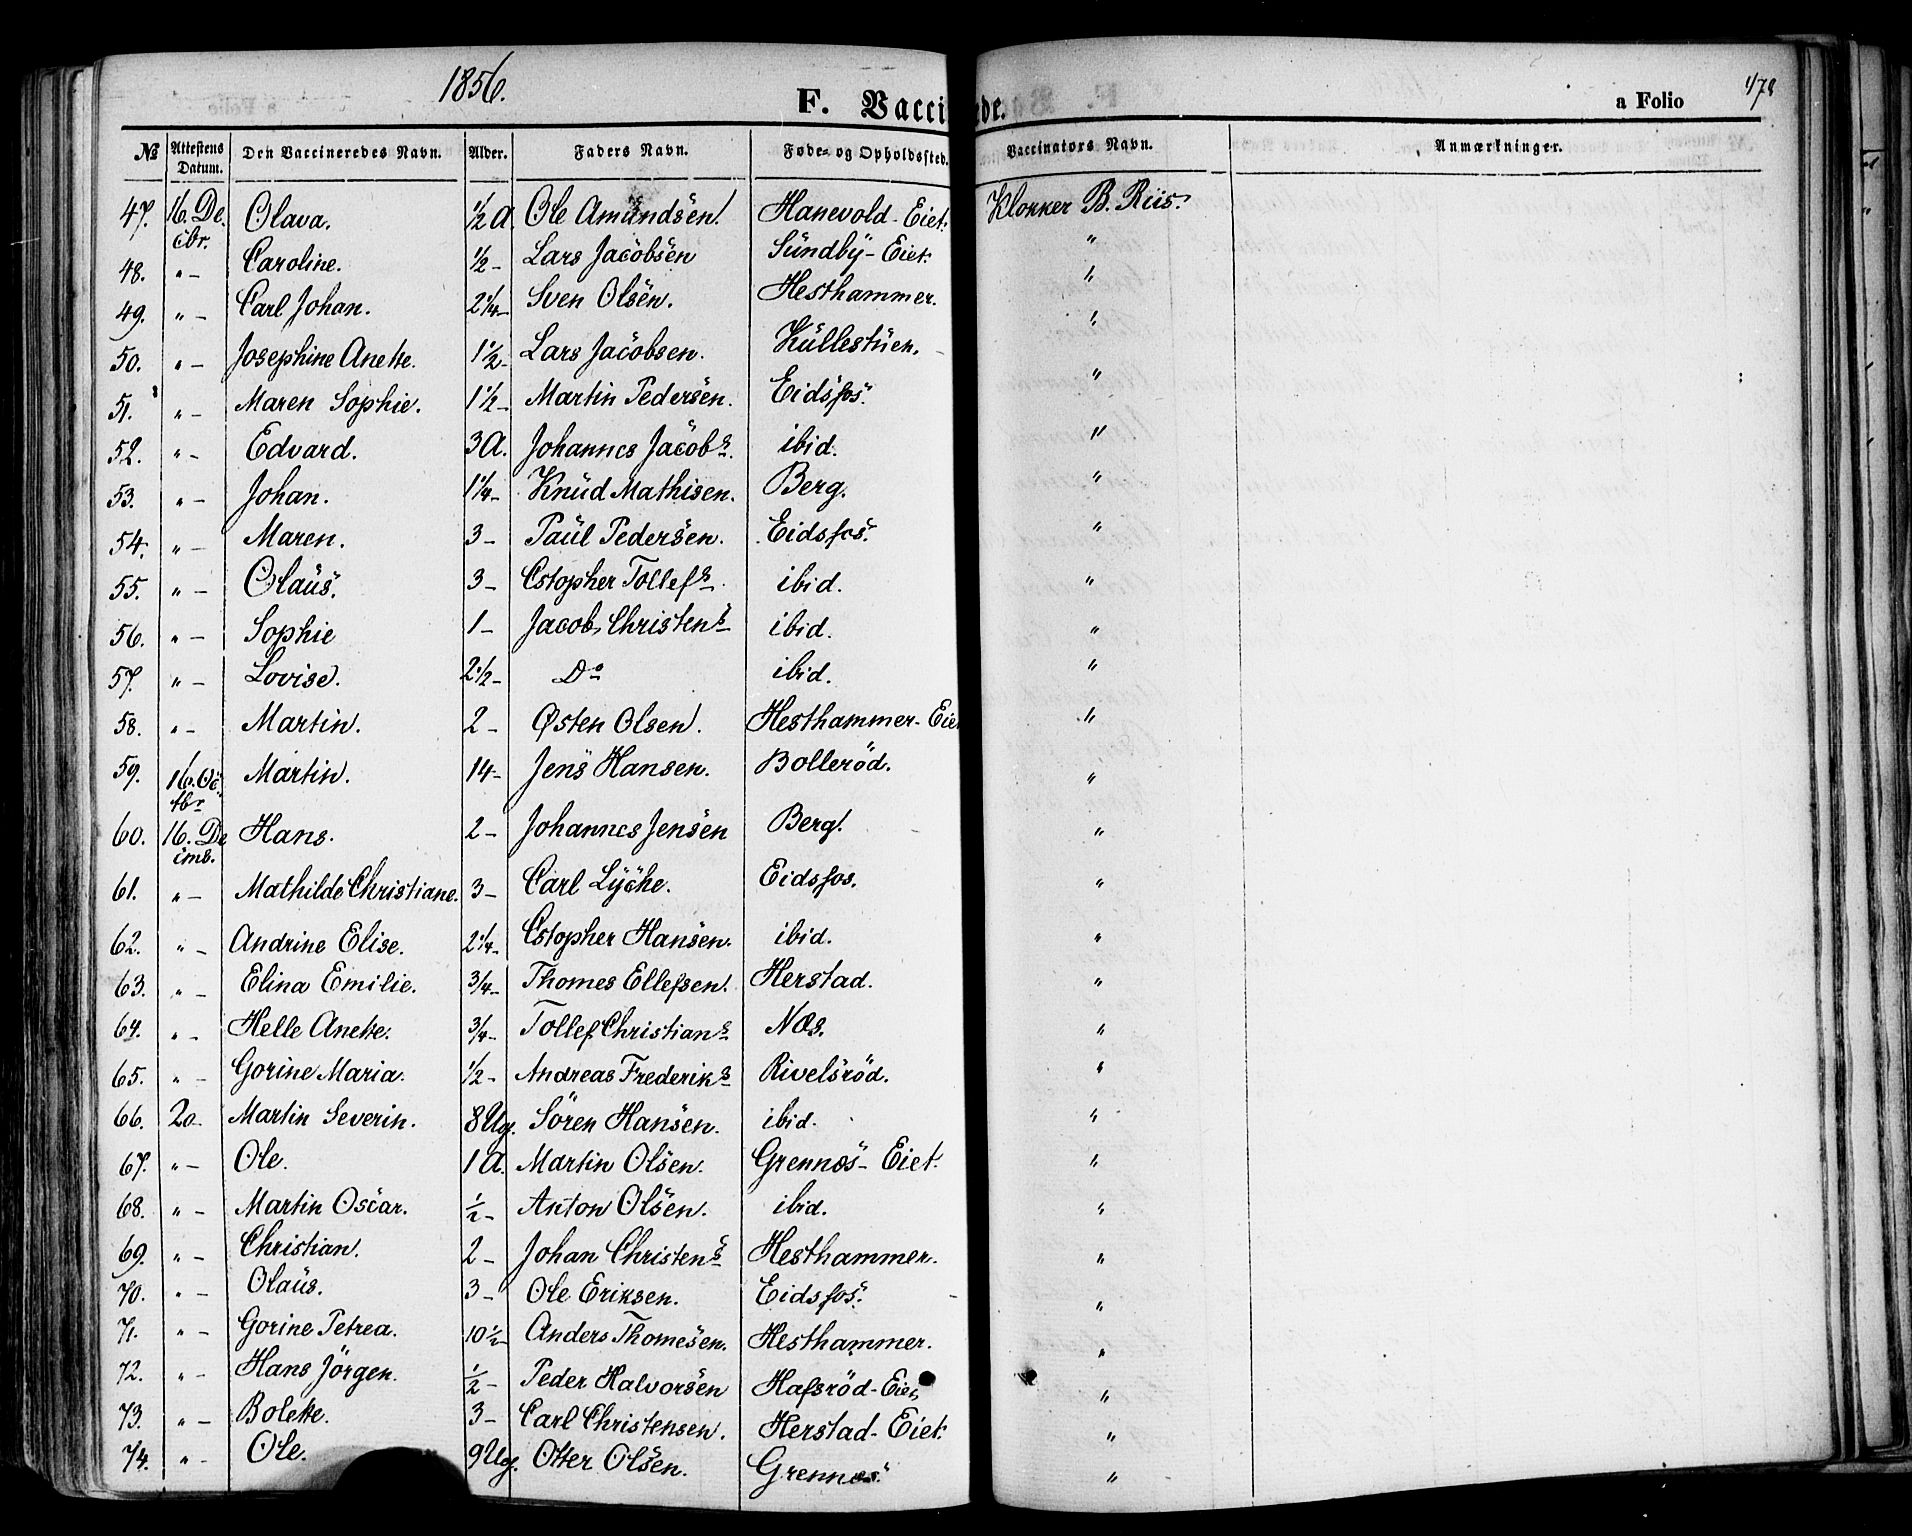 1856.
F. Vaccinerede.
a Folio 478
№ Attestens Datum. Den Vaccineredes Navn. Alder. Faders Navn. Føde- og Opholdssted. Vaccinators Navn. Anmærkninger.
47. 16. Decbr. Olava. 1/2 A. Ole Amundsen. Hanevold-Eiet. Klokker B. Riis.
48. " – Caroline. 1/2 – Lars Jacobsen Sundby-Eiet. "
49. " – Carl Johan. 2 1/4 – Sven Olsen. Hesthammer. "
50. " – Josephine Anette. 1 1/2 – Lars Jacobsen. Kullestuen. "
51. " – Maren Sophie. 1 1/2 – Martin Pedersen. Eidsfos. "
52. " – Edvard. 3 A. Johannes Jacobs. ibid. "
53. " – Johan. 1 1/4 – Knud Mathisen. Berg. "
54. " – Maren. 3 – Paul Pedersen. Eidsfos. "
55. " – Olaus. 3 – Cstopher Tollefs. ibid. "
56. " – Sophie 1 – Jacob Christens ibid. "
57. " – Lovise. 2 1/2 – Do ibid. "
58. " – Martin. 2 – Østen Olsen. Hesthammer-Eiet "
59. 16. Octbr Martin. 14 – Jens Hansen. Bolleröd. "
60. 16. Decmb. Hans. 2 – Johannes Jensen Berg. "
61. " – Mathilde Christiane. 3 – Carl Lyche. Eidsfos. "
62. " – Andrine Elise. 2 1/4 – Cstopher Hansen. ibid. "
63. " – Elina Emilie. 3/4 – Thomes Ellefsen. Herstad. "
64. " – Helle Anette. 3/4 – Tollef Christians Næs. "
65. " – Gorine Maria. 1/2 – Andreas Frederiks Rivelsröd. "
66. 20 – Martin Severin. 8 Ug. Sören Hansen. ibid. "
67. " – Ole. 1 A. Martin Olsen. Grennæs-Eiet. "
68. " – Martin Oscar. 1/2 – Anton Olsen. ibid. "
69. " – Christian. 2 – Johan Christens Hesthammer. "
70. " – Olaus. 3 – Ole Eriksen. Eidsfos. "
71. " – Gorine Petrea. 10 1/2 – Anders Thomesen. Hesthammer. "
72. " – Hans Jörgen. 1/2 – Peder Halvorsen Hafsröd-Eiet "
73. " – Bolette. 3 – Carl Christensen. Herstad-Eiet. "
74. " – Ole. 9 Ug. Otter Olsen. Grennæs. "